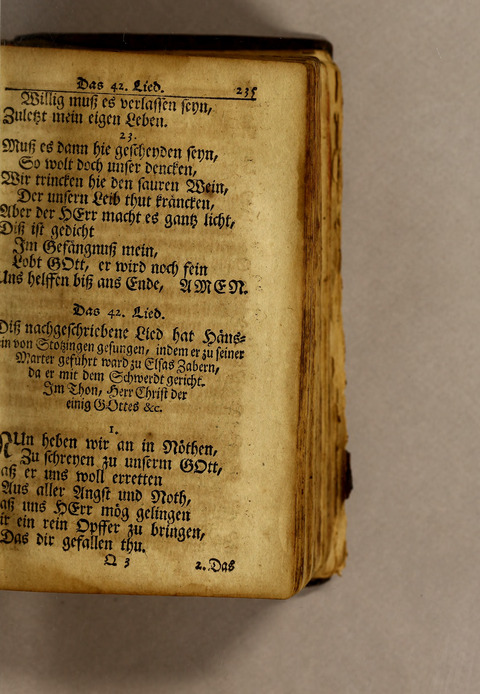 Das 42. Lied. 235
Willig muß es verlassen seyn,
Zuletzt mein eigen Leben.
23.
Muß es dann hie gescheyden seyn,
So wolt doch unser dencken,
Wir trincken hie den sauren Wein,
Der unsern Leib thut kräncken,
Aber der HErr macht es gantz licht,
Diß ist gedicht
Im Gefängnuß mein,
Lobt GOtt, er wird noch fein
Uns helffen biß ans Ende, AMEN.
Das 42. Lied.
Diß nachgeschriebene Lied hat Häns-
ein von Stotzingen gesungen, indem er zu seiner
Marter geführt ward zu Elsas Zabern,
da er mit dem Schwerdt gericht.
Im Thon, Herr Christ der
einig GOttes &c.
1.
NUn heben wir an in Nöthen,
Zu schreyen zu unserm GOtt,
aß er uns woll erretten
Aus aller Angst und Noth,
aß uns HErr mög gelingen
ir ein rein Opffer zu bringen,
Das dir gefallen thu.
Q 3 2. Das